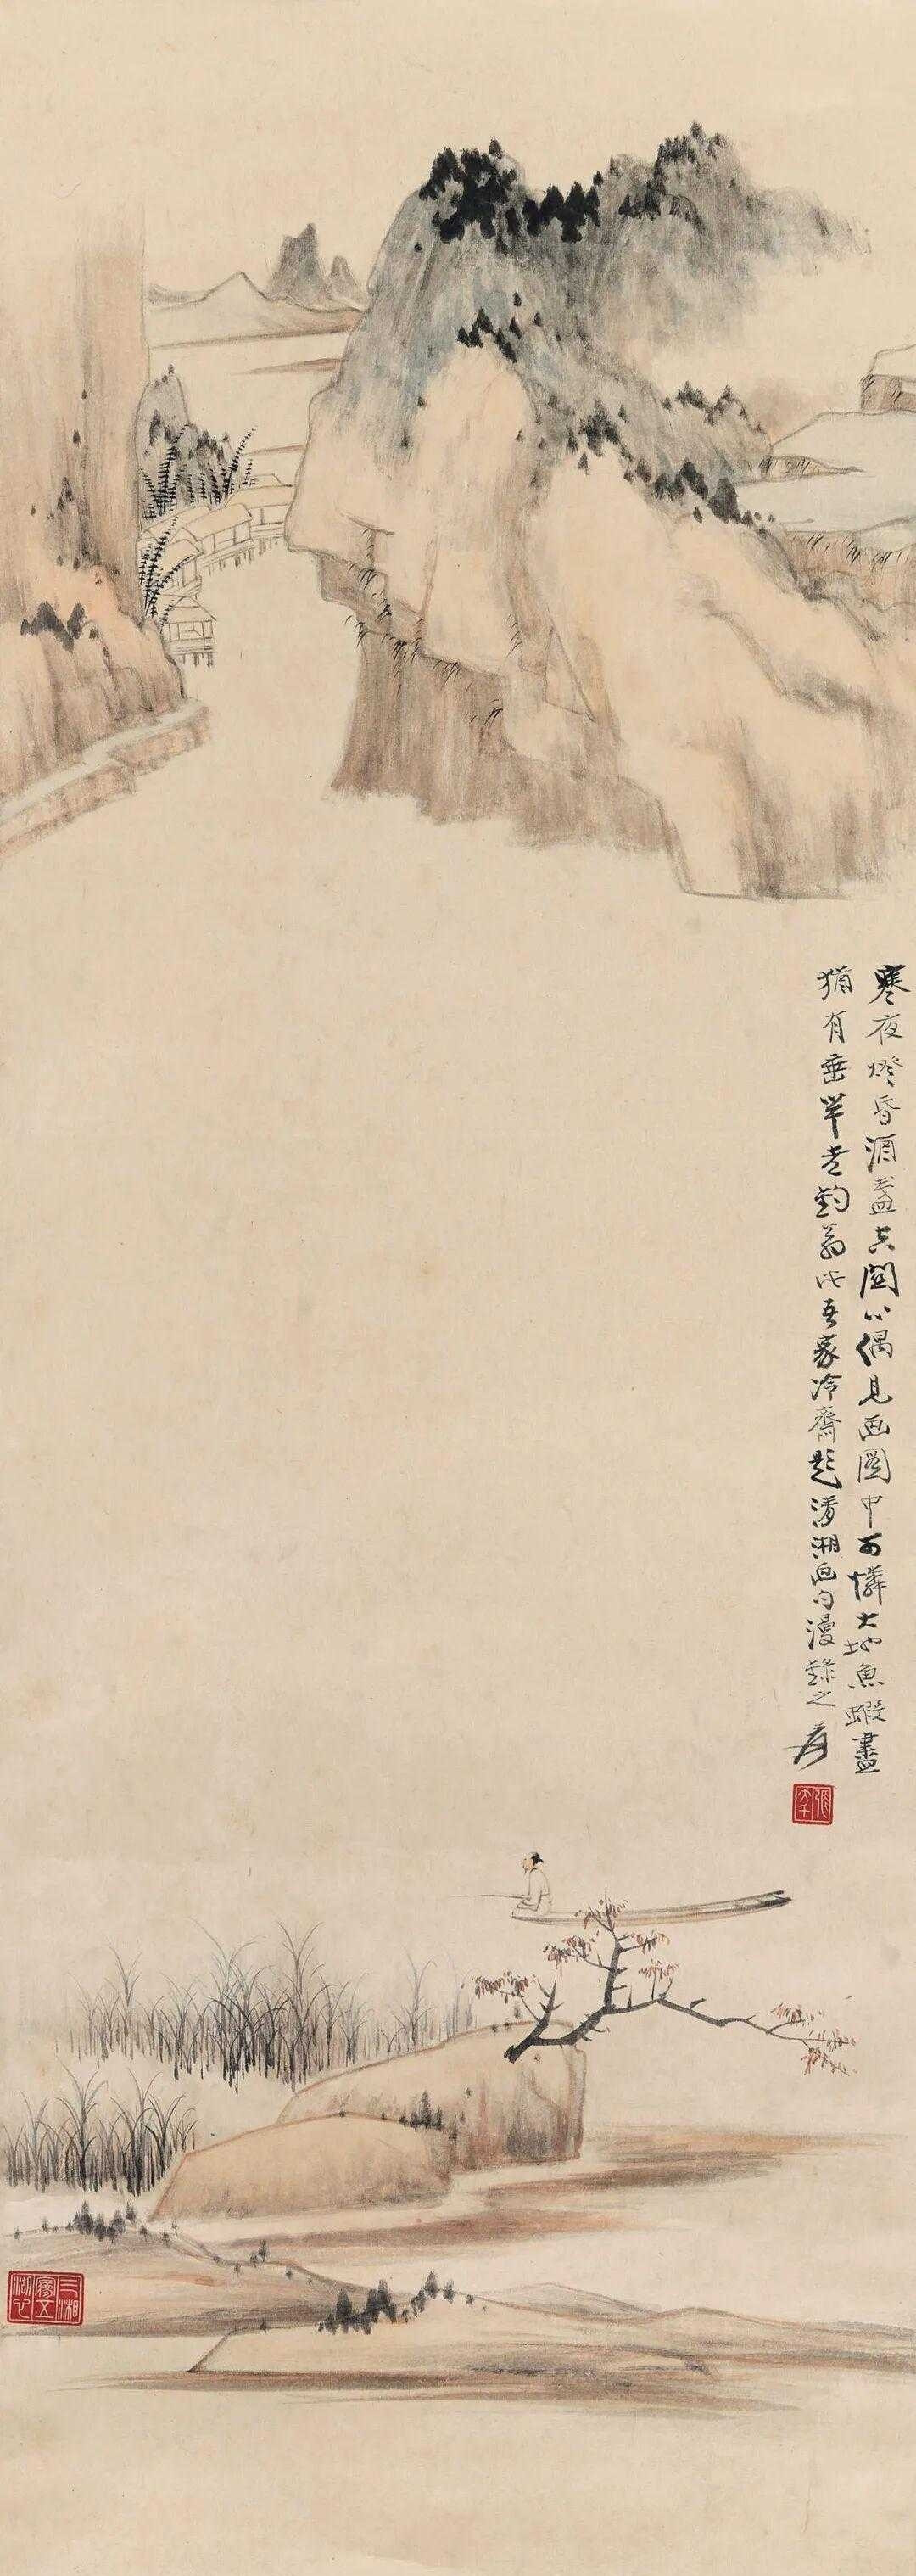 寒夜燈昏酒盞空關心偶見画圖中可憐大地魚蝦盡
猶有垂竿老釣翁此吾家冷齋題清湘画句漫錄之
爰
張大千
三湘
五
湖心